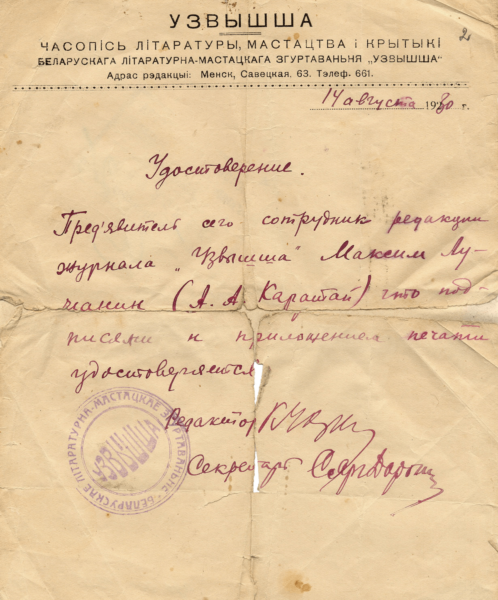 УЗВЫШША
2
ЧАСОПІСЬ ЛІТАРАТУРЫ, МАСТАЦТВА і КРЫТЫКІ
БЕЛАРУСКАГА ЛІТАРАТУРНА-МАСТАЦКАГА ЗГУРТАВАНЬНЯ „УЗВЫШША“
Адрас рэдакцыі: Менск, Савецкая, 63. Тэлеф. 661.
14 августа 1930 г.
Удостоверение.
Пред'явитель сего сотрудник редакции
журнала „Узвышша" Максим Лу-
жанин (А. А. Каратай) что под-
писями и приложением печати
удостоверяется
Редактор
Секретарь
БЕЛАРУСКАЕ ЛІТАРАТУРНА-МАСТАЦКАЕ ЗГУРТАВАНЬНЕ
УЗВЫШША